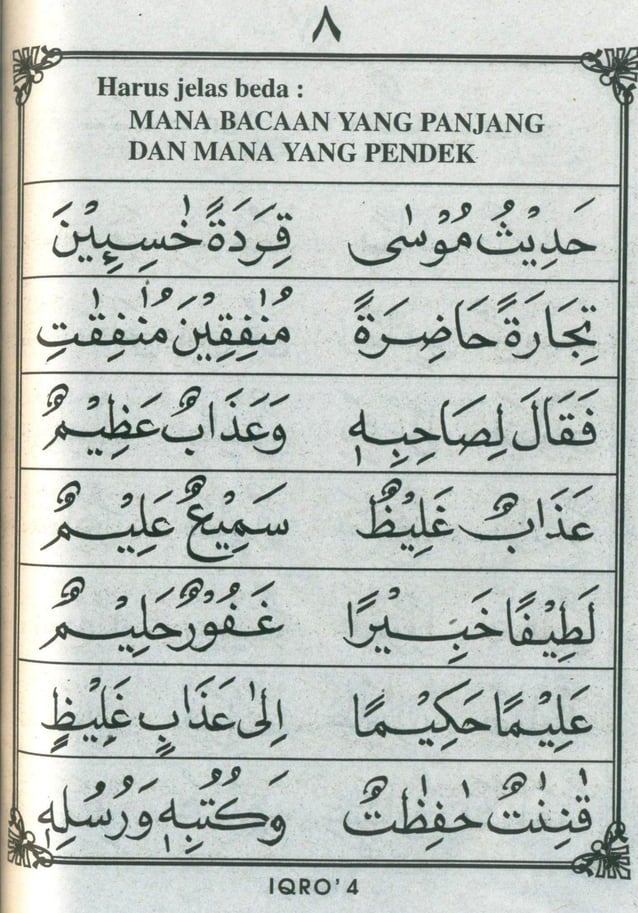 ٨
Harus jelas beda :
MANA BACAAN YANG PANJANG
DAN MANA YANG PENDEK
حَدِيْثُ مُوْسٰى قِرَدَةً خٰسِـِٕيْنَ
تِجَارَةً حَاضِرَةً مُنْفِقِيْنَ مُنْفِقٰتِ
فَقَالَ لِصَاحِبِهٖ وَعَذَابٌ عَظِيْمٌ
عَذَابٌ غَلِيْظٌ سَمِيْعٌ عَلِيْمٌ
لَطِيْفًا خَبِيْرًا غَفُوْرٌ حَلِيْمٌ
عَلِيْمًا حَكِيْمًا اِلٰى عَذَابٍ غَلِيْظٍ
قٰنِتٰتٌ حٰفِظٰتٌ وَكُتُبِهٖ وَرُسُلِهٖ
IQRO' 4